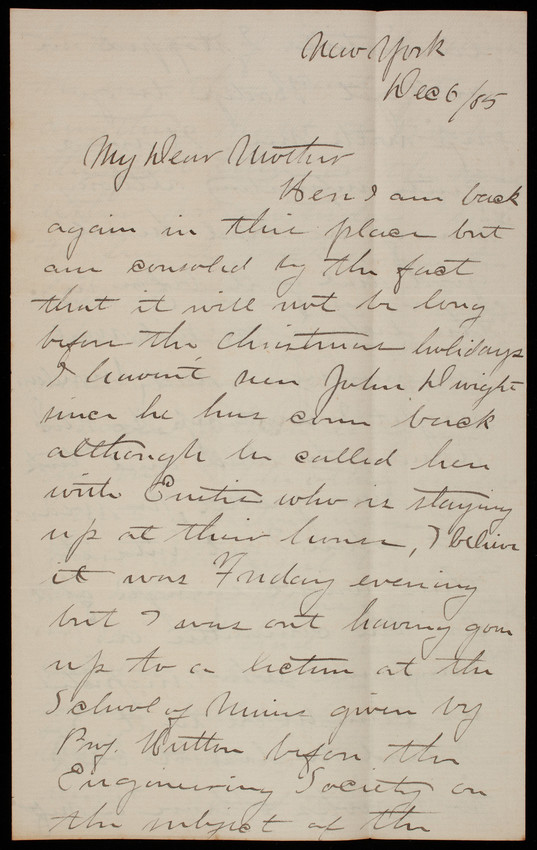 New York
Dec 6/85
My Dear Mother
Here I am back
again in this place but
am consoled by the fact
that it will not be long
before the Christmas holidays
I haven't seen John Dwight
since he has come back
although he called here
with who is staying
up at their house, I believe
it was Friday evening
but I was out having gone
up to a lecture at the
School of Mines given by
Prof. Hutton before the
Engineering Society on
the subject of the